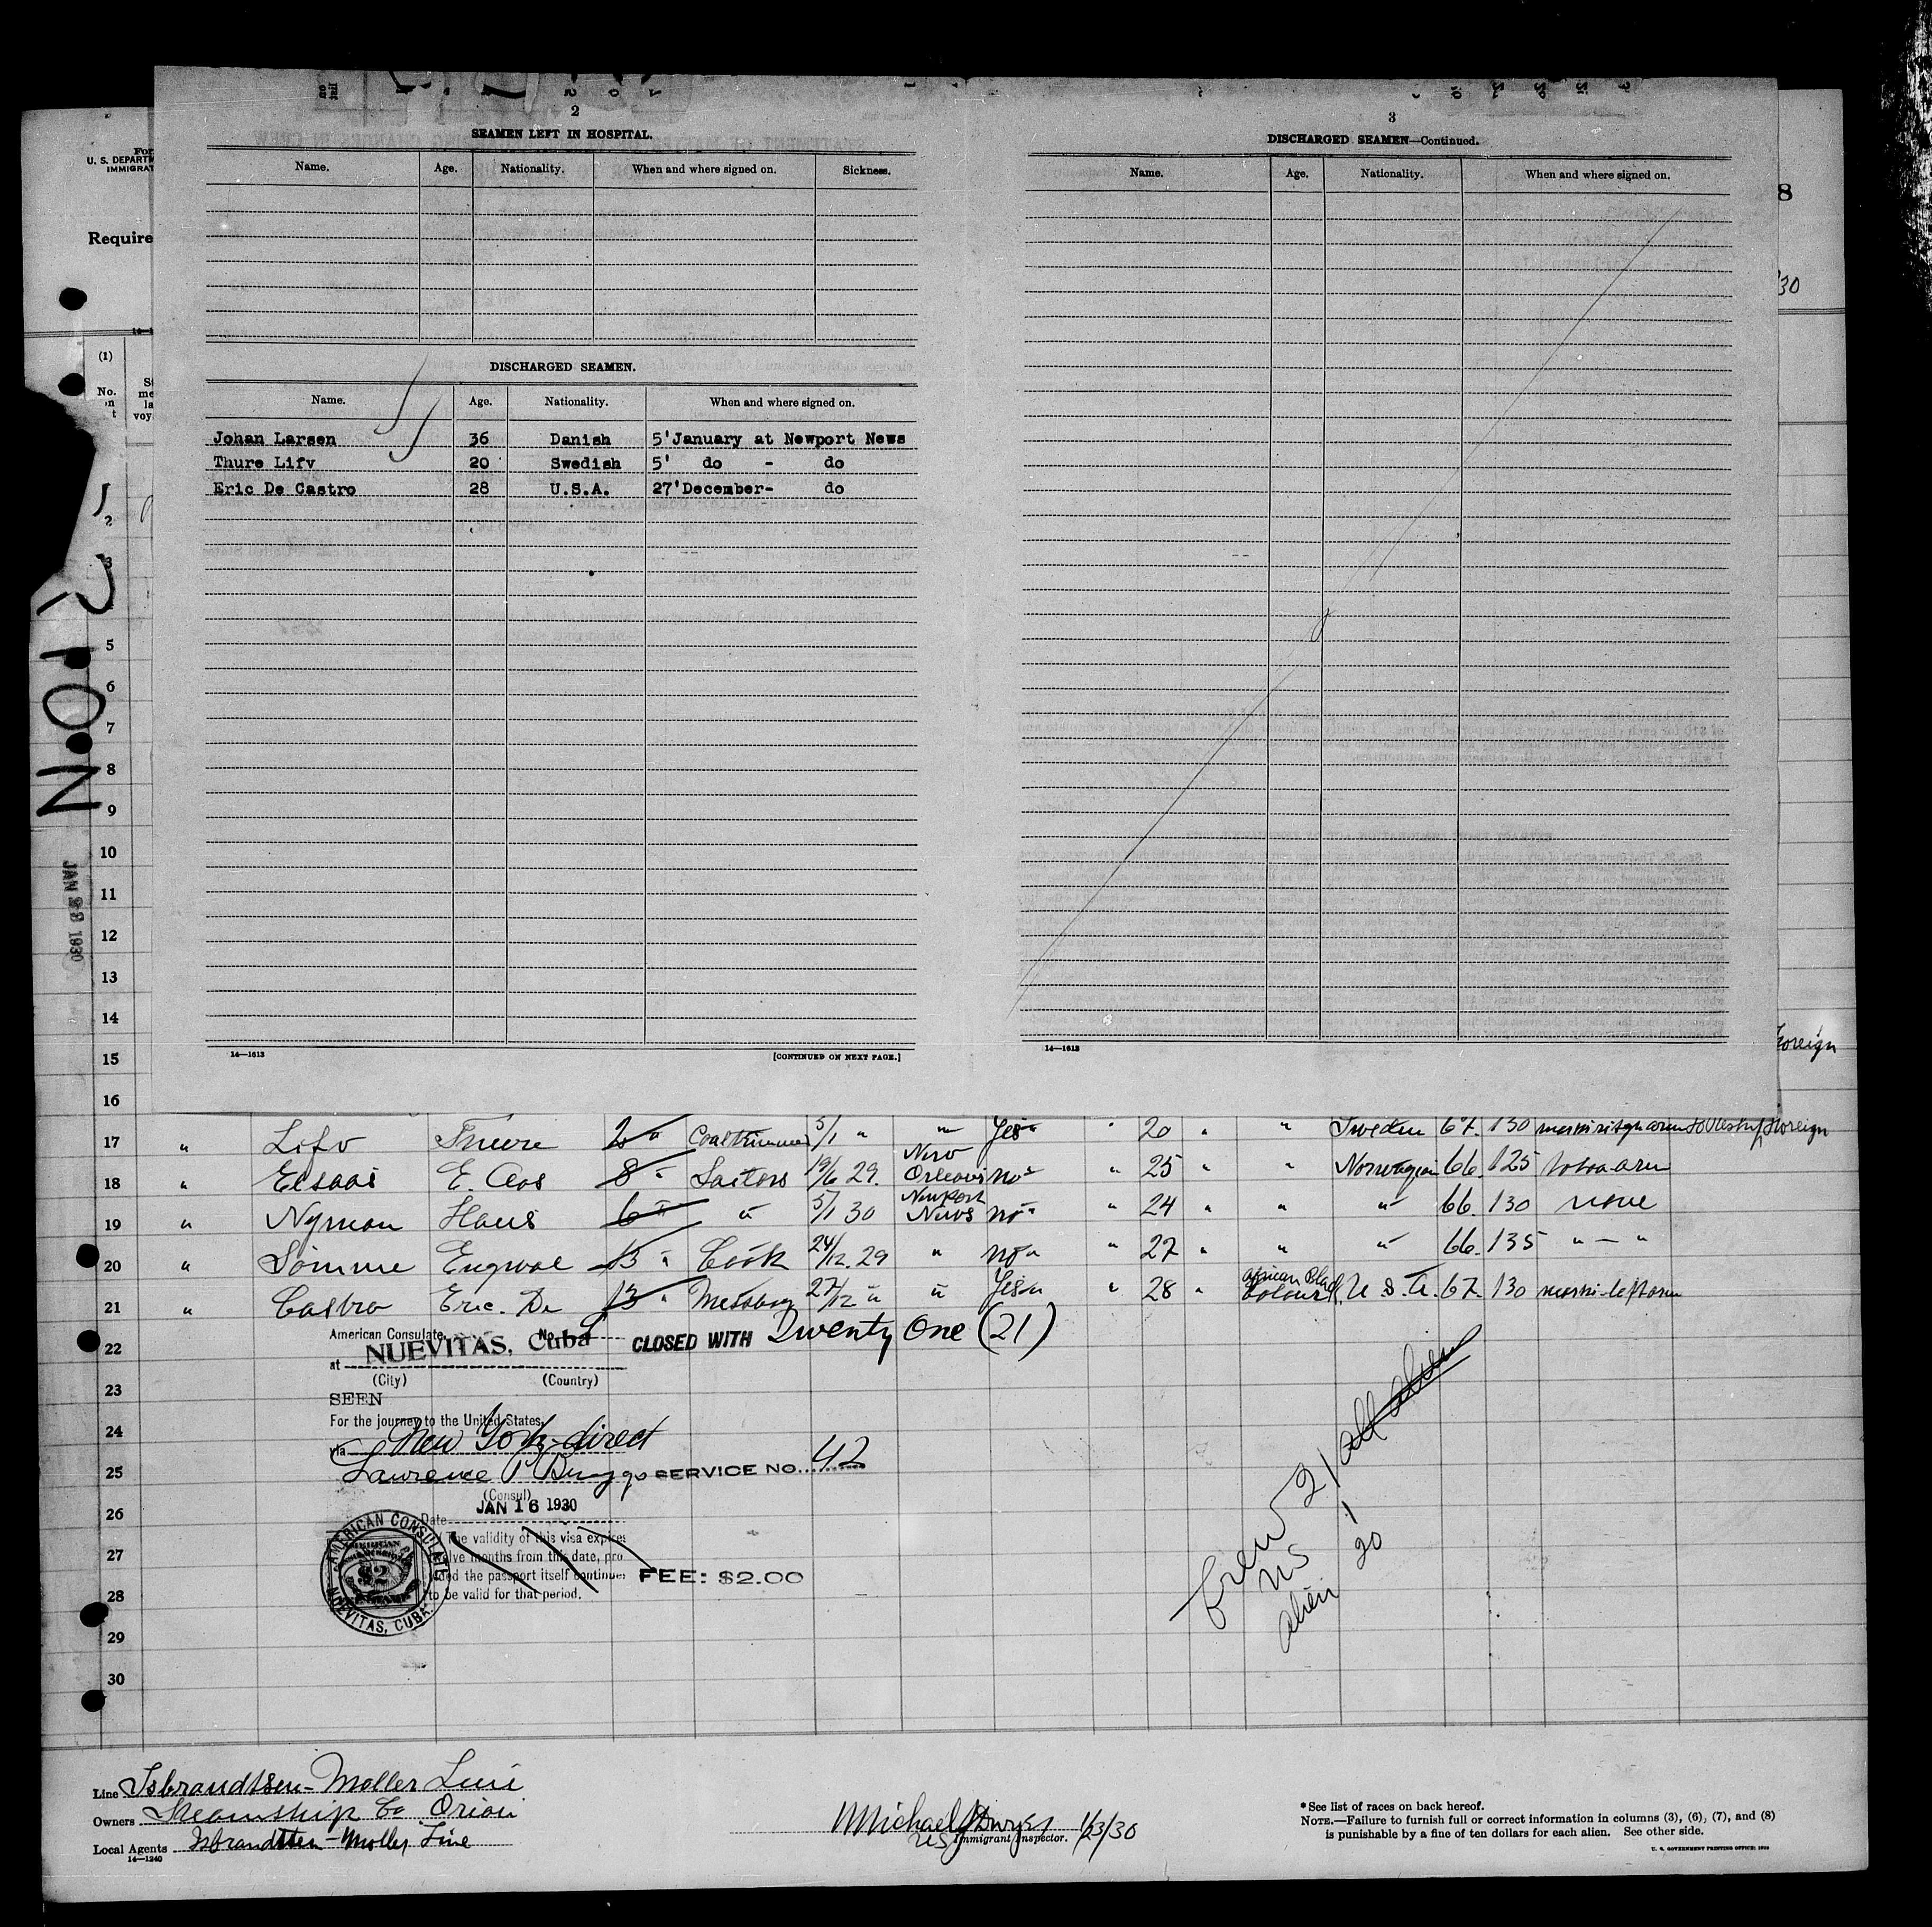 2
SEAMEN LEFT IN HOSPITAL.
Name. Age. Nationality. When and where signed on. Sickness.
DISCHARGED SEAMEN.
Name. Age. Nationality. When and where signed on.
Johan Larsen 36 Danish 5'January at Newport News
Thure Lifv 20 Swedish 5' do - do
Eric De Castro 28 U.S.A. 27'December- do
14—1613 [CONTINUED ON NEXT PAGE.]
3
DISCHARGED SEAMEN—Continued.
Name. Age. Nationality. When and where signed on.
14—1613
U. S. DEPARTM
IMMIGRAT
Require
8
/30
(1)
No.
JAN 23 1930
2
3
5
6
7
8
9
10
11
12
13
14
15 Foreign
16
17 " Lifv Thure 2 " Coaltrimmer 5/1 " " Yes " " 20 " " Sweden 67. 130
18 " E. Aas 8 " Sailors 19/6 29. New Orleans no " " 25 " " Norwegian 66. 125
19 " Nyman Hans 6 " " 5/1 30 Newport News no " " 24 " " " 66. 130 none
20 " Sömme Engvoe 13 " Cook 24/12. 29 " no " " 27 " " " 66. 135 " — "
21 " Castro Eric. De 13 " Messboy 27/12 " " Yes " " 28 " African Black Coloured U. S. A. 67. 130
22
23
24
25
26
27
28
29
30
American Consulate, No.
at NUEVITAS, Cuba CLOSED WITH Twenty One (21)
(City) (Country)
SEEN
For the journey to the United States,
via New York direct
Lawrence P Briggs SERVICE NO. 42
(Consul)
Date JAN 16 1930
(The validity of this visa expires
elve months from this date, pro
ded the passport itself continues
to be valid for that period.
FEE: $2.00
AMERICAN CONSULATE
$2
NUEVITAS, CUBA.
Crew 21 all alien
US 1
alien 20
Line Isbrandtsen-Moller Line
Owners Steamship Co Orion
Local Agents Isbrandtsen-Moller Line
14—1240
Michael J Dwyer 1/23/30
US Immigrant Inspector.
*See list of races on back hereof.
NOTE.—Failure to furnish full or correct information in columns (3), (6), (7), and (8)
is punishable by a fine of ten dollars for each alien. See other side.
U. S. GOVERNMENT PRINTING OFFICE: 1929